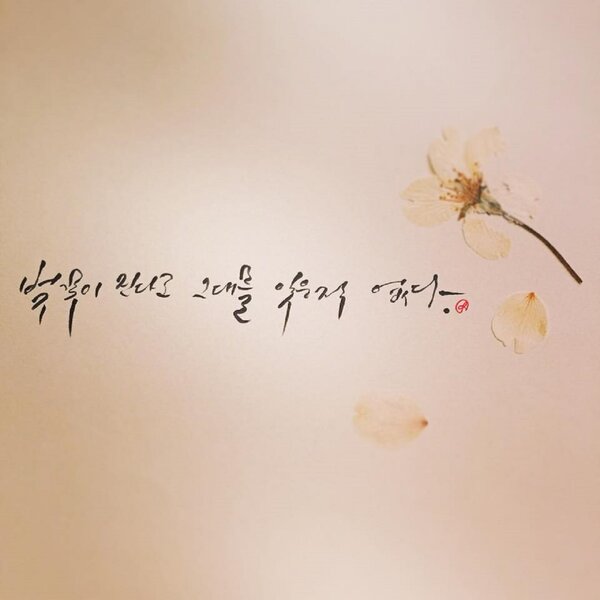 벚꽃이 진다고 그대를 잊은적 없다.